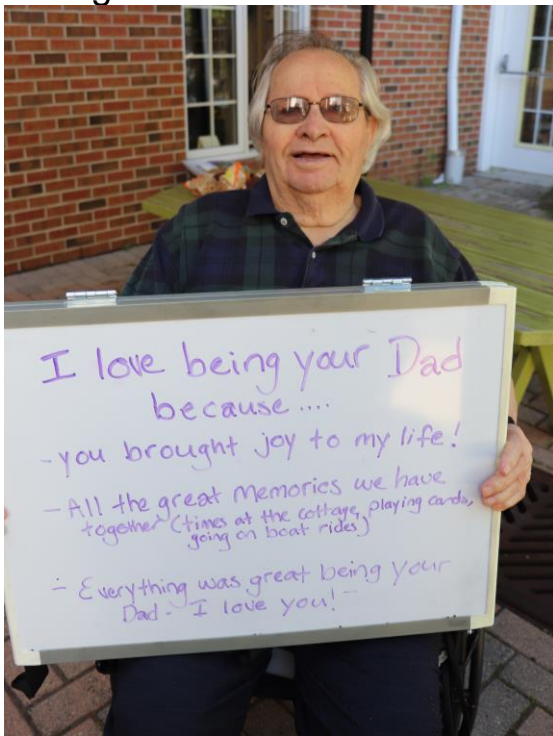 I love being your Dad
because ....
- you brought joy to my life!
- All the great memories we have
together (times at the cottage, playing cards,
going on boat rides)
- Everything was great being your
Dad - I love you! -